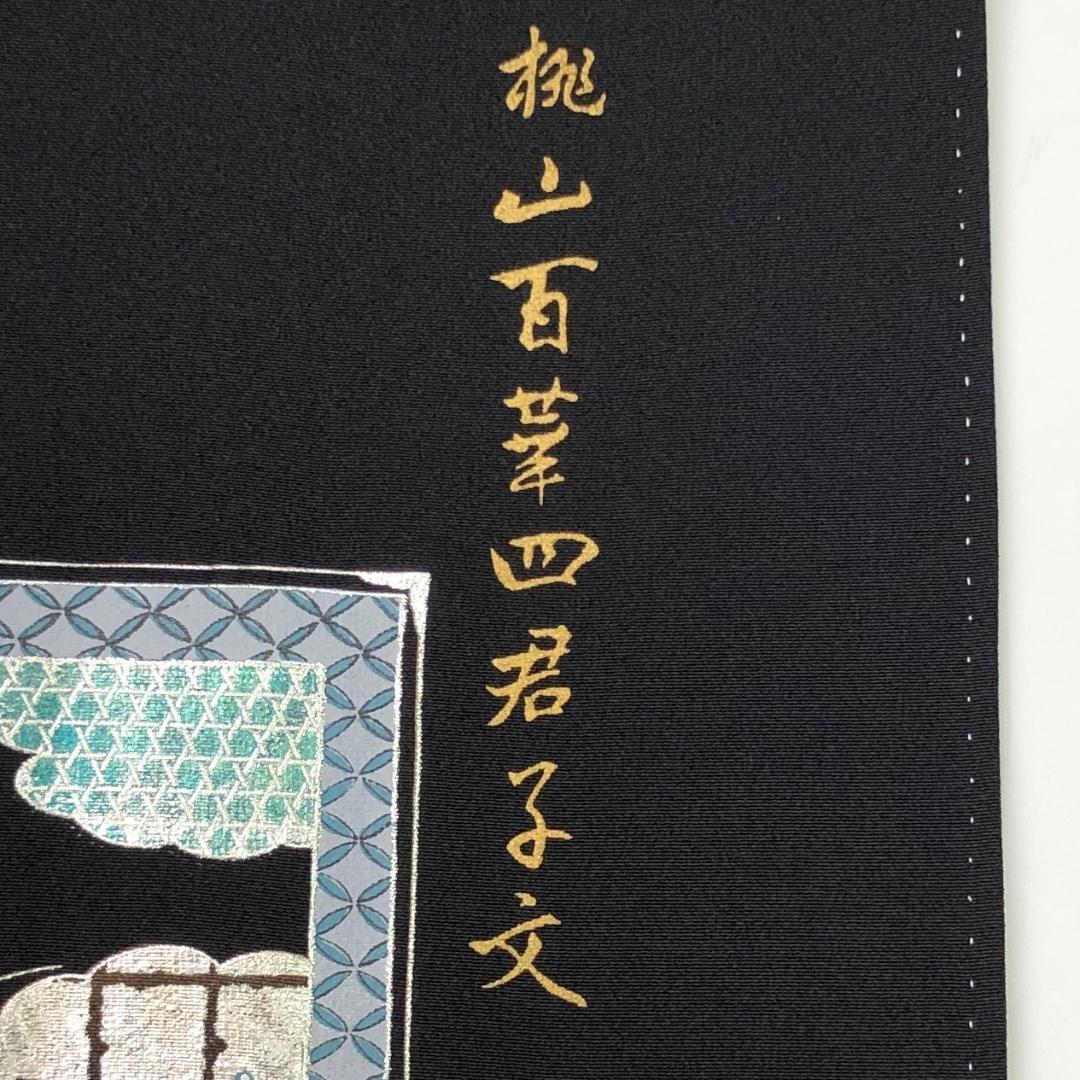 桃山百華四君子文